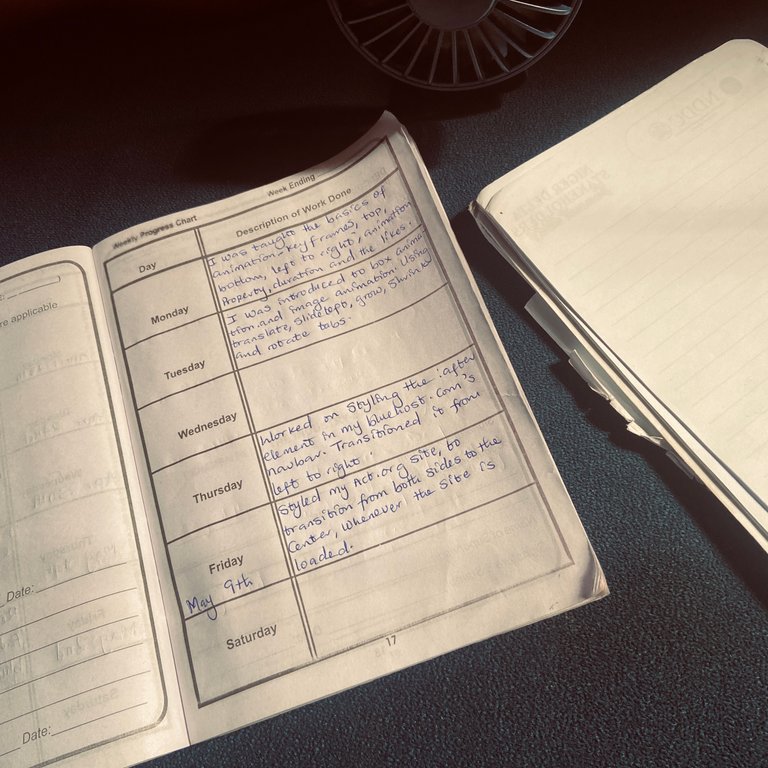 Weekly Progress Chart
Week Ending
Day
Description of Work Done
Monday
I was taught the basics of
animation, keyframes, top,
bottom, left to right, animation
Property, duration and the likes.
Tuesday
I was introduced to box anima
tion and image animation. Using
translate, slideleft, grow,
and rotate tabs.
Wednesday
Thursday
Worked on styling the :after
element in my bluehost.com's
navbar. Transitioned it from
left to right.
Friday
May 9th
Styled my Act.org site, to
transition from both sides to the
Center, whenever the site is
loaded.
Saturday
17
re applicable
Date:
Date: